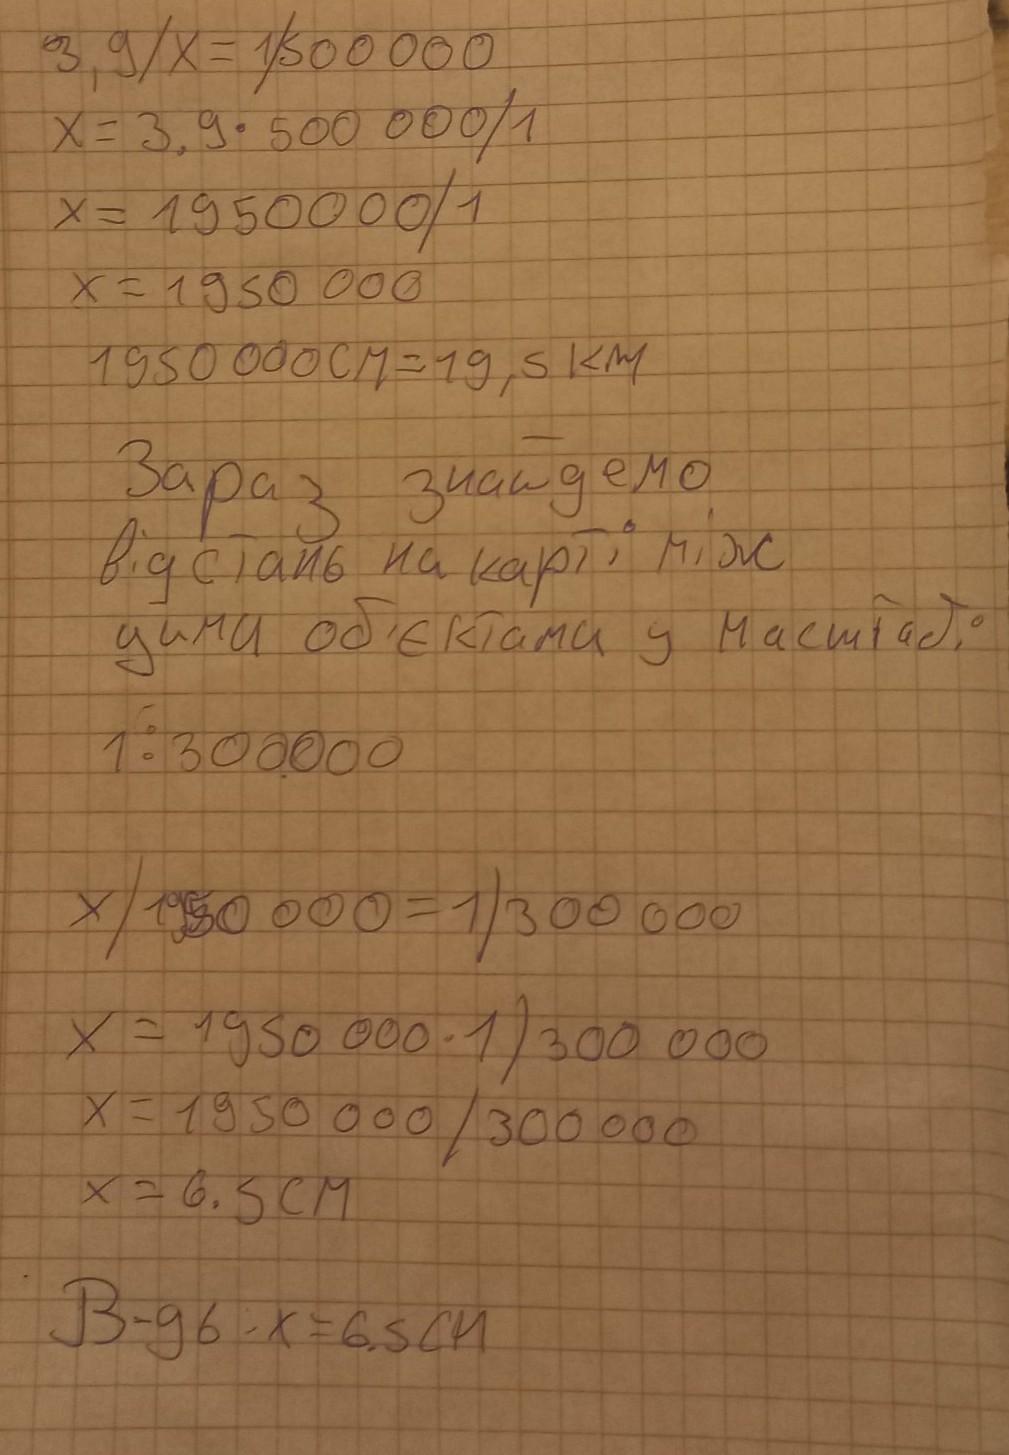 3,9/x=1/500 000
x=3,9·500 000/1
x=1950000/1
x=1950 000
1950 000см=19,5 км
Зараз знайдемо
відстань на карті між
цими об'єктами у масштабі
1:300000
x/1950 000=1/300 000
x=1950 000·1/300 000
x=1950 000/300 000
x=6.5см
В-дь·x=6.5см